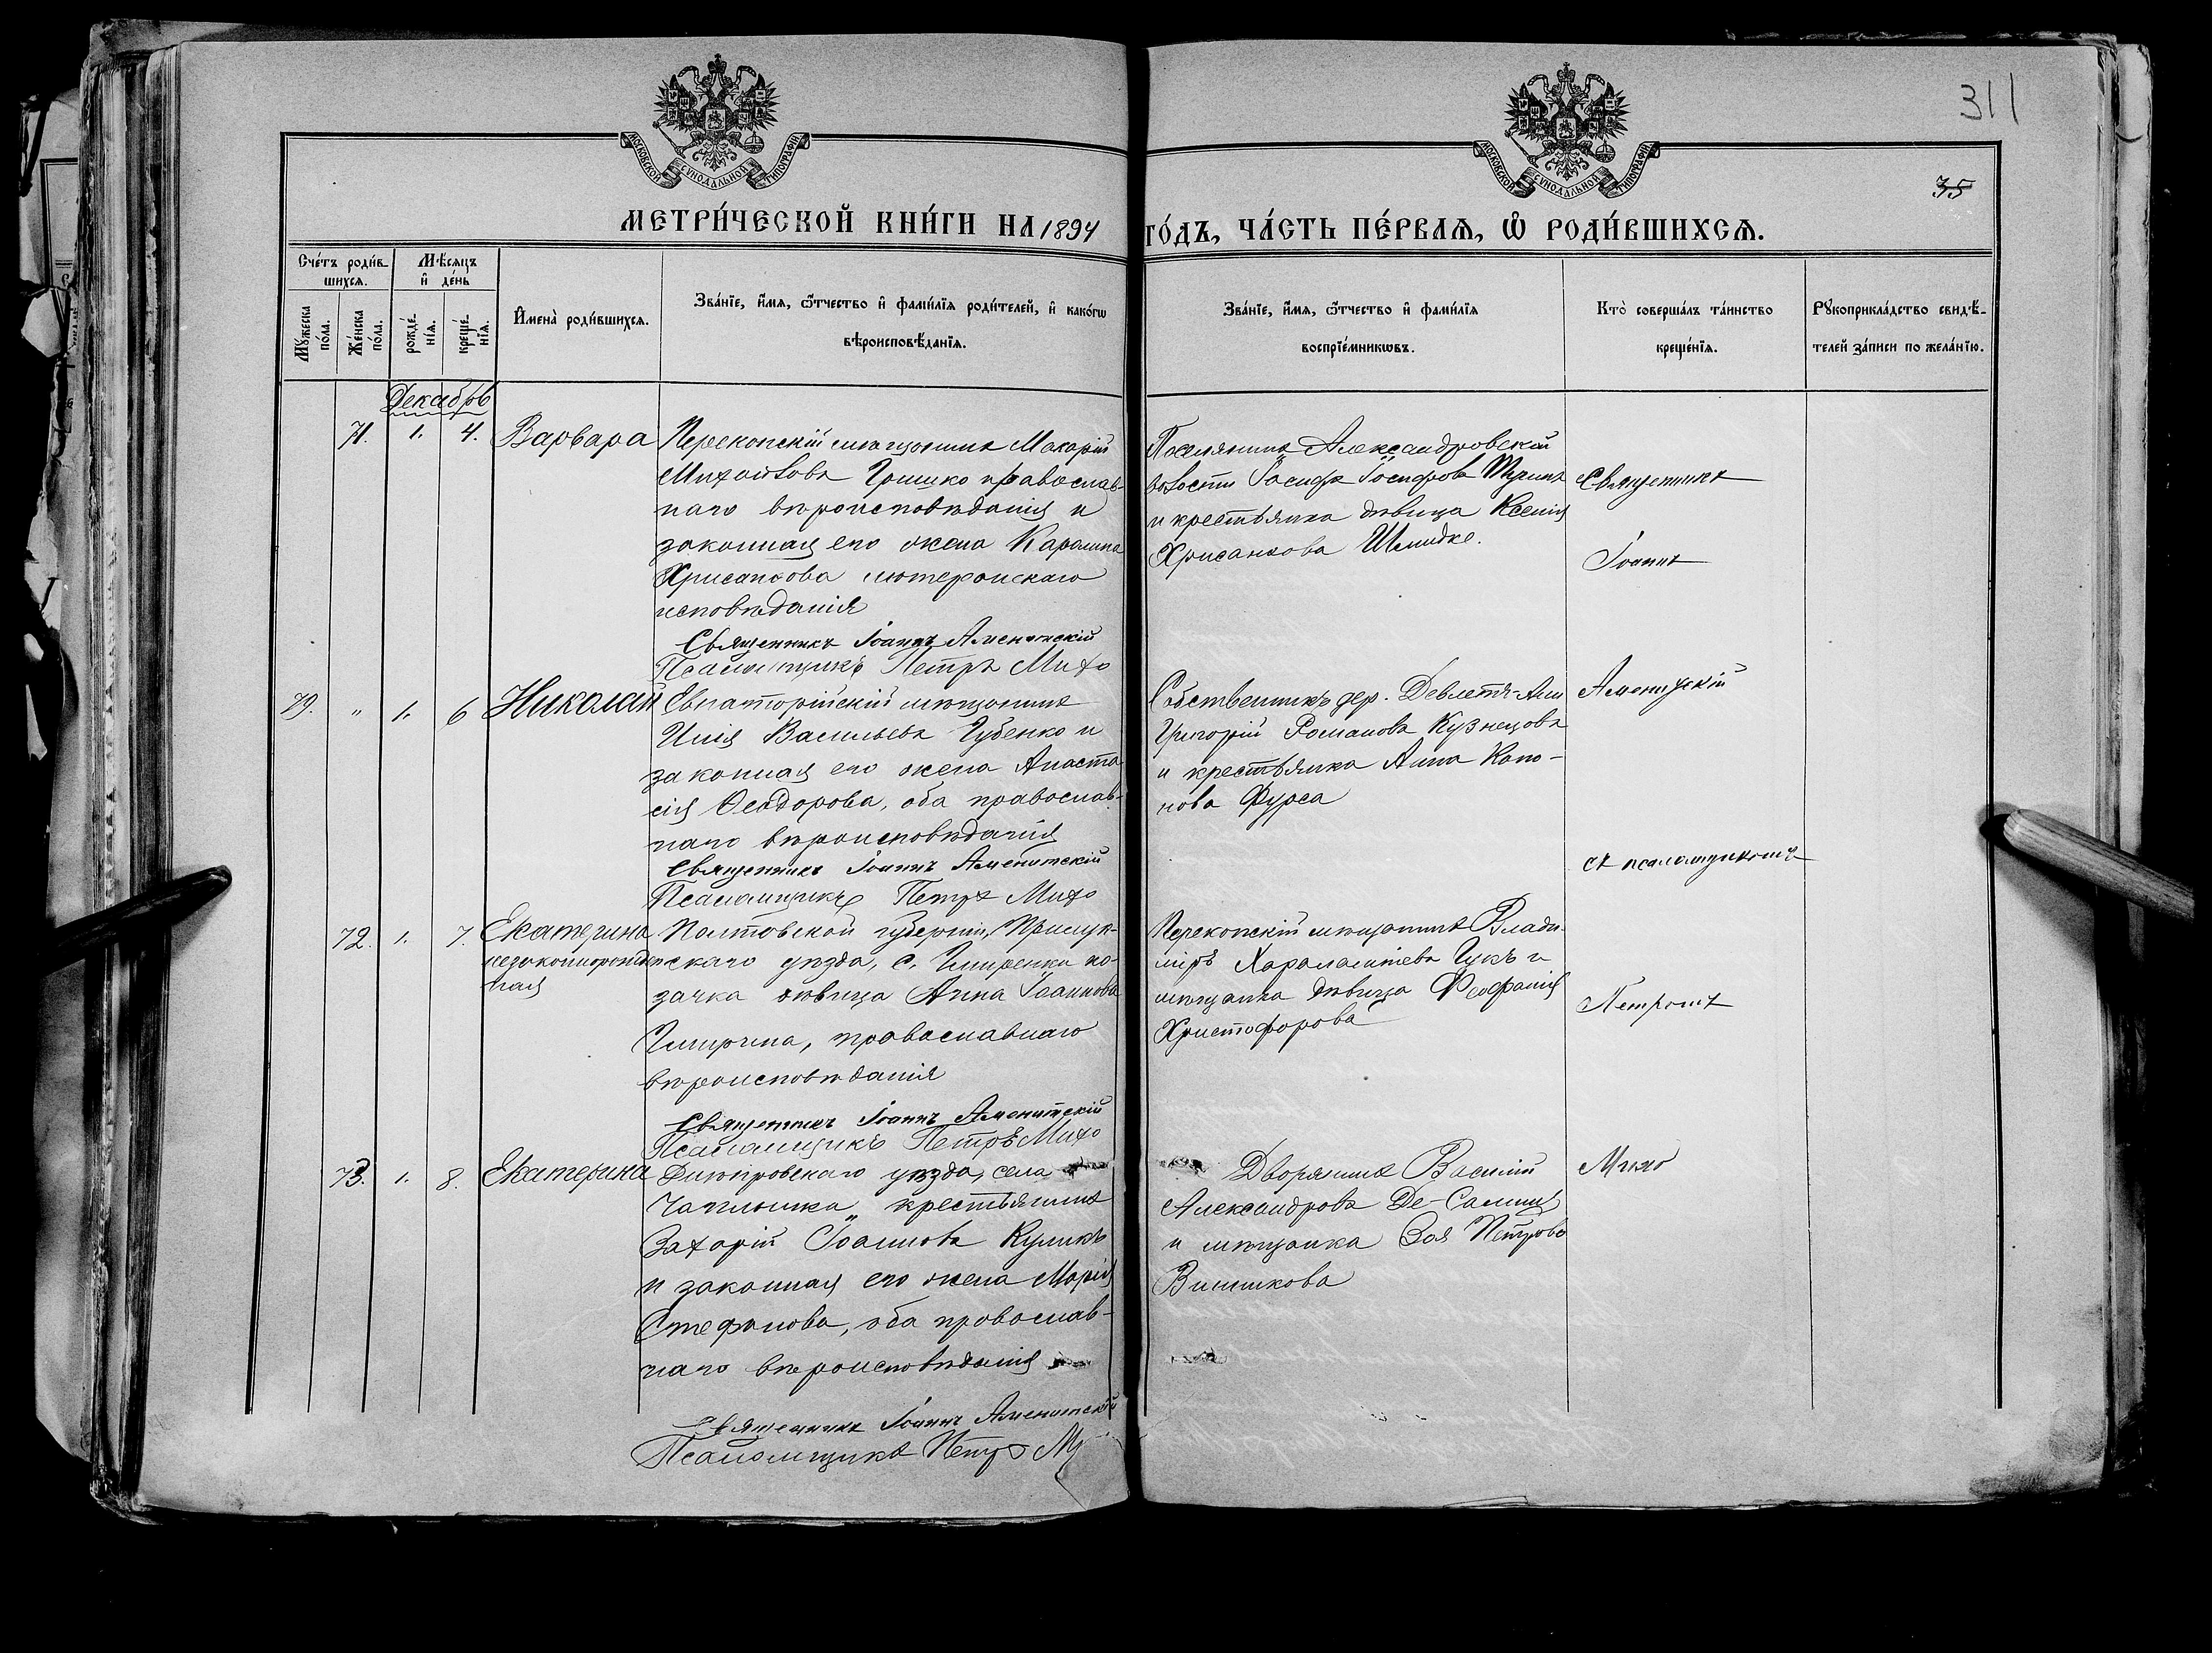 311
35
МОСКОВСКОЙ СѴНОДАЛЬНОЙ ТИПОГРАФІИ
МОСКОВСКОЙ СѴНОДАЛЬНОЙ ТИПОГРАФІИ
МЕТРИ́ЧЕСКОЙ КНИ́ГИ НА 1894 ГО́ДЪ, ЧА́СТЬ ПЕ́РВАЯ, Ѡ҆ РОДИ́ВШИХСЯ.
Сче́тъ роди́вшихся.
Мѣ́сяцъ и҆ де́нь
Мꙋ́жеска по́ла.
Же́нска по́ла.
рожде́нїя.
креще́нїя.
И҆мена̀ роди́вшихся.
Зва́нїе, и҆́мя, ѻ҆́тчество и҆ фами́лїя роди́телей, и҆ како́гѡ
вѣроисповѣ́данїя.
Зва́нїе, и҆́мя, ѻ҆́тчество и҆ фами́лїя
воспрїе́мникѡвъ.
Кто̀ соверша́лъ та́инство
креще́нїя.
Рꙋкоприкла́дство свидѣ́-
телей за́писи по жела́нїю.
Декабрь
71. 1. 4. Варвара
Перекопскій мѣщанинъ Макарій
Михайловъ Гришко православ-
наго вѣроисповѣданія и
законная его жена Каролина
Хрисанѳова лютеранскаго
исповѣданія
Священникъ Іоаннъ Аменитскій
Псаломщикъ Петръ Михо
Поселянинъ Александровской
волости Іосифъ Іосифовъ
и крестьянка дѣвица Ксенія
Хрисанѳова Шмидке.
Священникъ
Іоаннъ
79. " 1. 6 Николай
Евпаторійскій мѣщанинъ
Илія Васильевъ Губенко и
законная его жена Анаста
сія Ѳеодорова, оба православ-
наго вѣроисповѣданія
Священникъ Іоаннъ Аменитскій
Псаломщикъ Петръ Михо
Собственникъ дер. Девлетъ-Али
Григорій Романовъ Кузнецовъ
и крестьянка Анна Коно-
нова Фурса
Аменитскій
съ псаломщикомъ
72. 1. 7. Екатерина
незаконнорожден
ная
Полтовской губерніи, Прилук-
скаго уѣзда, с. ко-
зачка дѣвица Анна Іоаннова
православнаго
вѣроисповѣданія
Священникъ Іоаннъ Аменитскій
Псаломщикъ Петръ Михо
Перекопскій мѣщанинъ Влади-
міръ Харалампіевъ Гукъ и
мѣщанка дѣвица Ѳеофанія
Христофорова
Петромъ
73. 1. 8. Екатерина
Днѣпровскаго уѣзда, села
Чаплынка, крестьянинъ
Захарій Іоанновъ Куликъ
и законная его жена Марія
Стефанова, оба православ-
наго вѣроисповѣданія
Священникъ Іоаннъ Аменитскій
Псаломщикъ Петръ
Дворянинъ Василій
Александровъ
и мѣщанка Зоя Петрова
Винникова
Михо